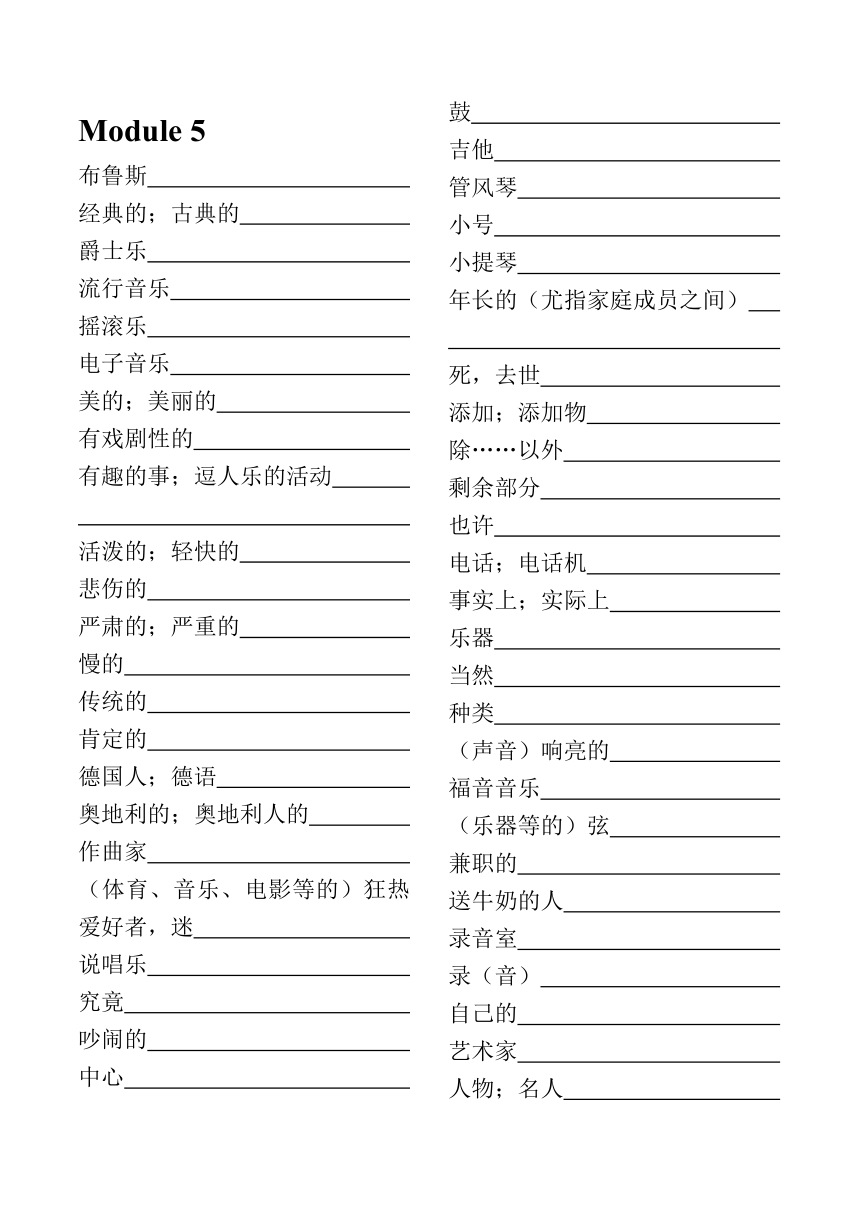 Module 5
布鲁斯
经典的；古典的
爵士乐
流行音乐
摇滚乐
电子音乐
美的；美丽的
有戏剧性的
有趣的事；逗人乐的活动
活泼的；轻快的
悲伤的
严肃的；严重的
慢的
传统的
肯定的
德国人；德语
奥地利的；奥地利人的
作曲家
（体育、音乐、电影等的）狂热
爱好者，迷
说唱乐
究竟
吵闹的
中心
鼓
吉他
管风琴
小号
小提琴
年长的（尤指家庭成员之间）
死，去世
添加；添加物
除……以外
剩余部分
也许
电话；电话机
事实上；实际上
乐器
当然
种类
（声音）响亮的
福音音乐
（乐器等的）弦
兼职的
送牛奶的人
录音室
录（音）
自己的
艺术家
人物；名人